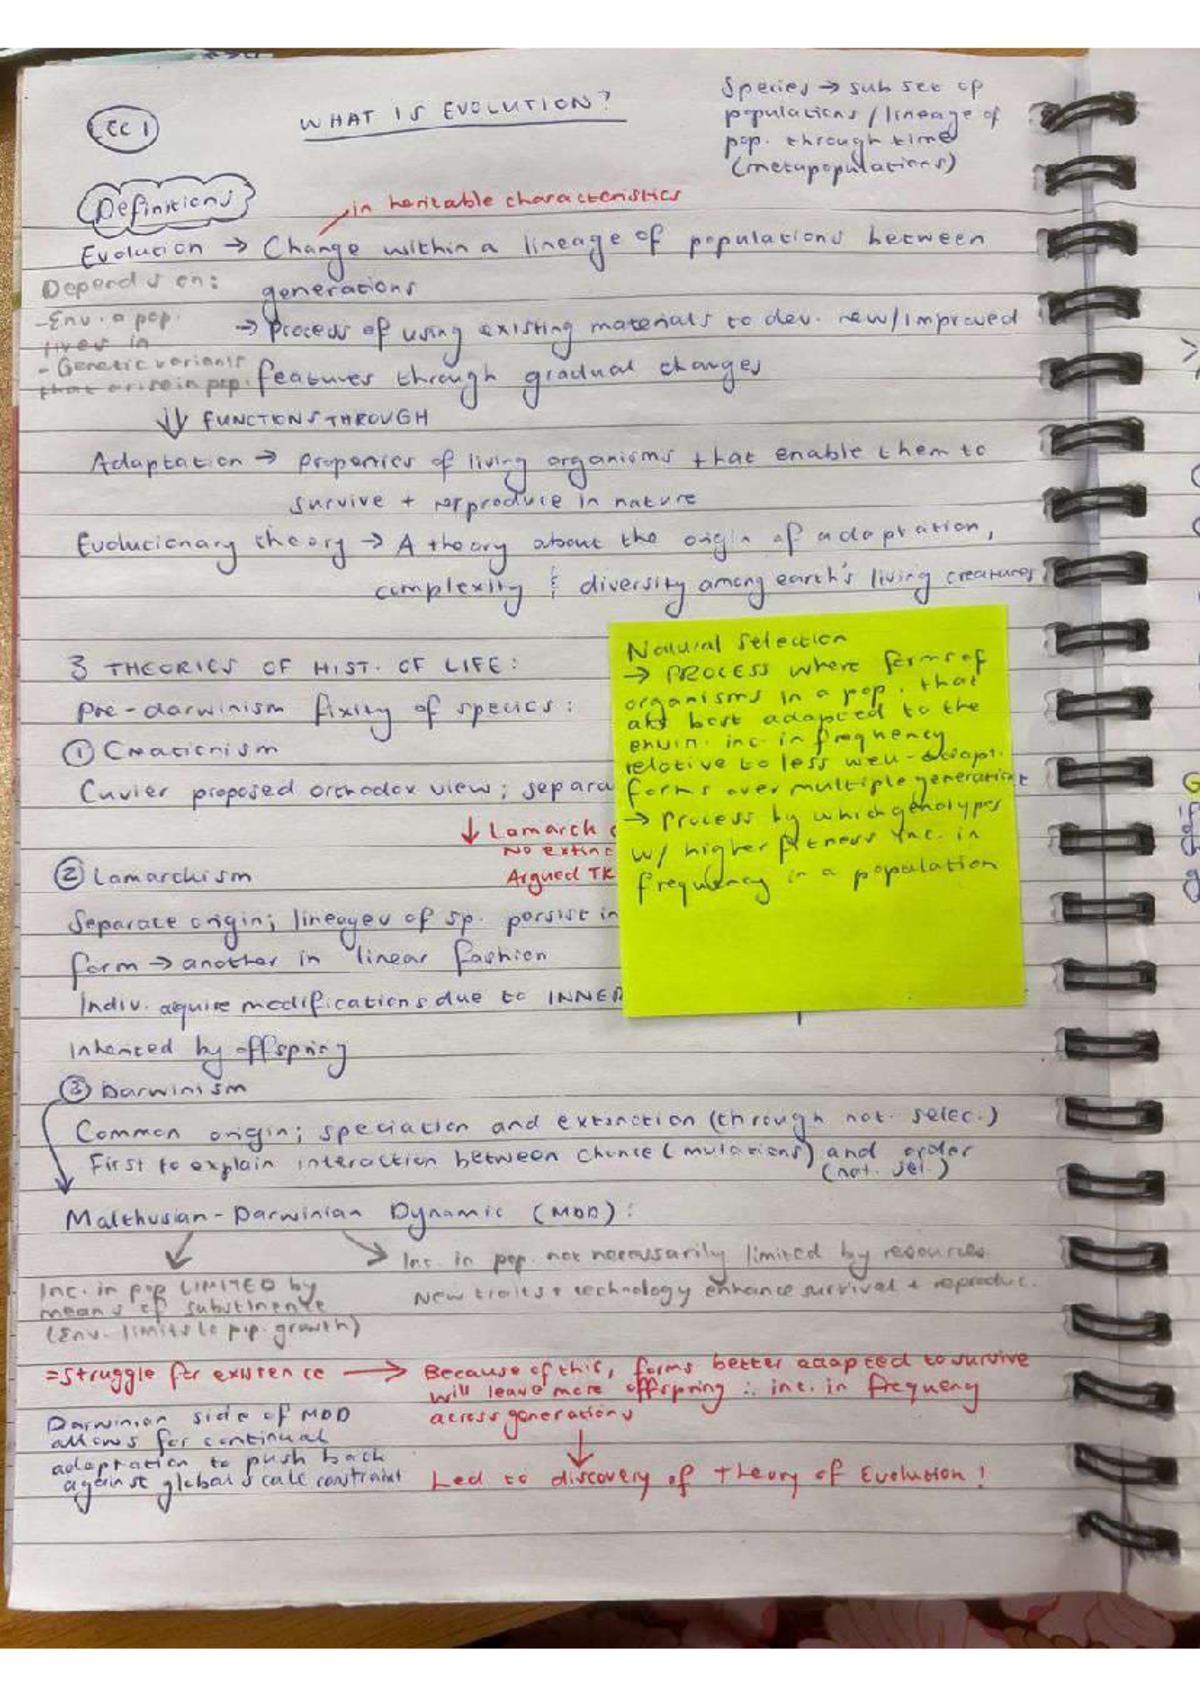 EC 1
WHAT IS EVOLUTION?
Species → sub set of
populations / lineage of
pop. through time
(metapopulations)
Definitions
in heritable characteristics
Evolution → Change within a lineage of populations between
generations
Depends on:
- Env. a pop.
lives in
- Genetic variants
that arise in pop.
→ Process of using existing materials to dev. new/improved
features through gradual changes
↓↓ FUNCTIONS THROUGH
Adaptation → properties of living organisms that enable them to
survive + reproduce in nature
Evolutionary theory → A theory about the origin of adaptation,
complexity & diversity among earth's living creatures
3 THEORIES OF HIST. OF LIFE:
Pre-darwinism fixity of species:
① Creationism
Cuvier proposed orthodox view; separa
↓ Lamarck
No extinc
Argued TK
② Lamarckism
Separate origin; lineages of sp. persist in
form → another in linear fashion
Indiv. aquire modifications due to INNER
Inherited by offspring
Natural Selection
→ PROCESS where forms of
organisms in a pop. that
are best adapted to the
envir. inc. in frequency
relative to less well-adapt.
forms over multiple generations
→ Process by which genotypes
w/ higher fitness inc. in
frequency in a population
③ Darwinism
Common origin; speciation and extinction (through nat. selec.)
First to explain interaction between chance (mutations) and order
(nat. sel.)
Malthusian-Darwinian Dynamic (MDD):
Inc. in pop. not necessarily limited by resources.
New traits + technology enhance survival + reproduc.
Inc. in pop LIMITED by
means of substinente
(Env. limits to pop. growth)
= struggle for existence → Because of this, forms better adapted to survive
will leave more offspring ∴ inc. in frequency
across generations
↓
Led to discovery of Theory of Evolution!
Darwinian side of MDD
allows for continual
adaptation to push back
against global scale constraint